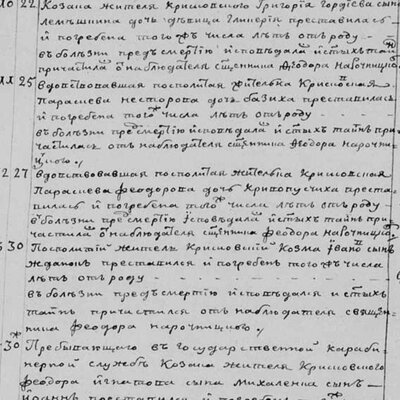 10 22 Козака жителя Крисовского Григория Гордѣева сына
Лемъшкина дочь дѣвица Гликерия преставилась
и погребена того жъ числа лѣтъ отъ роду
въ болѣзни предъ смертію исповѣдана и стыхъ таинъ
причастилась отъ наблюдателя сщенника Феодора Нарочницкого
11 25 вдовствовавшая посполитая жителка Крисовская
Параскева Несторова дочь преставилась
и погребена того числа лѣтъ отъ роду
въ болѣзни предъ смертію исповѣдана и стыхъ таинъ при
частилась отъ наблюдателя сщенника Феодора Нарочни
цкого
2 27 вдовствовавшая посполитая жителка Крисовская
Параскева Феодорова дочь преста
вилась и погребена того числа лѣтъ отъ роду
въ болѣзни предъ смертію исповѣдана и стыхъ таинъ при
частилась отъ наблюдателя сщенника Феодора Нарочницкого
30 Посполитій житель Крисовскій Козма Іванов сынъ
Ждановъ преставился и погребенъ того жъ числа
лѣтъ отъ роду
въ болѣзни предъ смертію исповѣдался и стыхъ
таинъ причастился отъ наблюдателя священ
ника Феодора Нарочницкого
30 Пребывающего въ государственной караби
нерной службѣ Козака жителя Крисовского
Феодора Игнатова сына Михаленка сынъ
Іоаннъ преставился и погребенъ